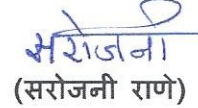 सरोजनी
(सरोजनी राणे)